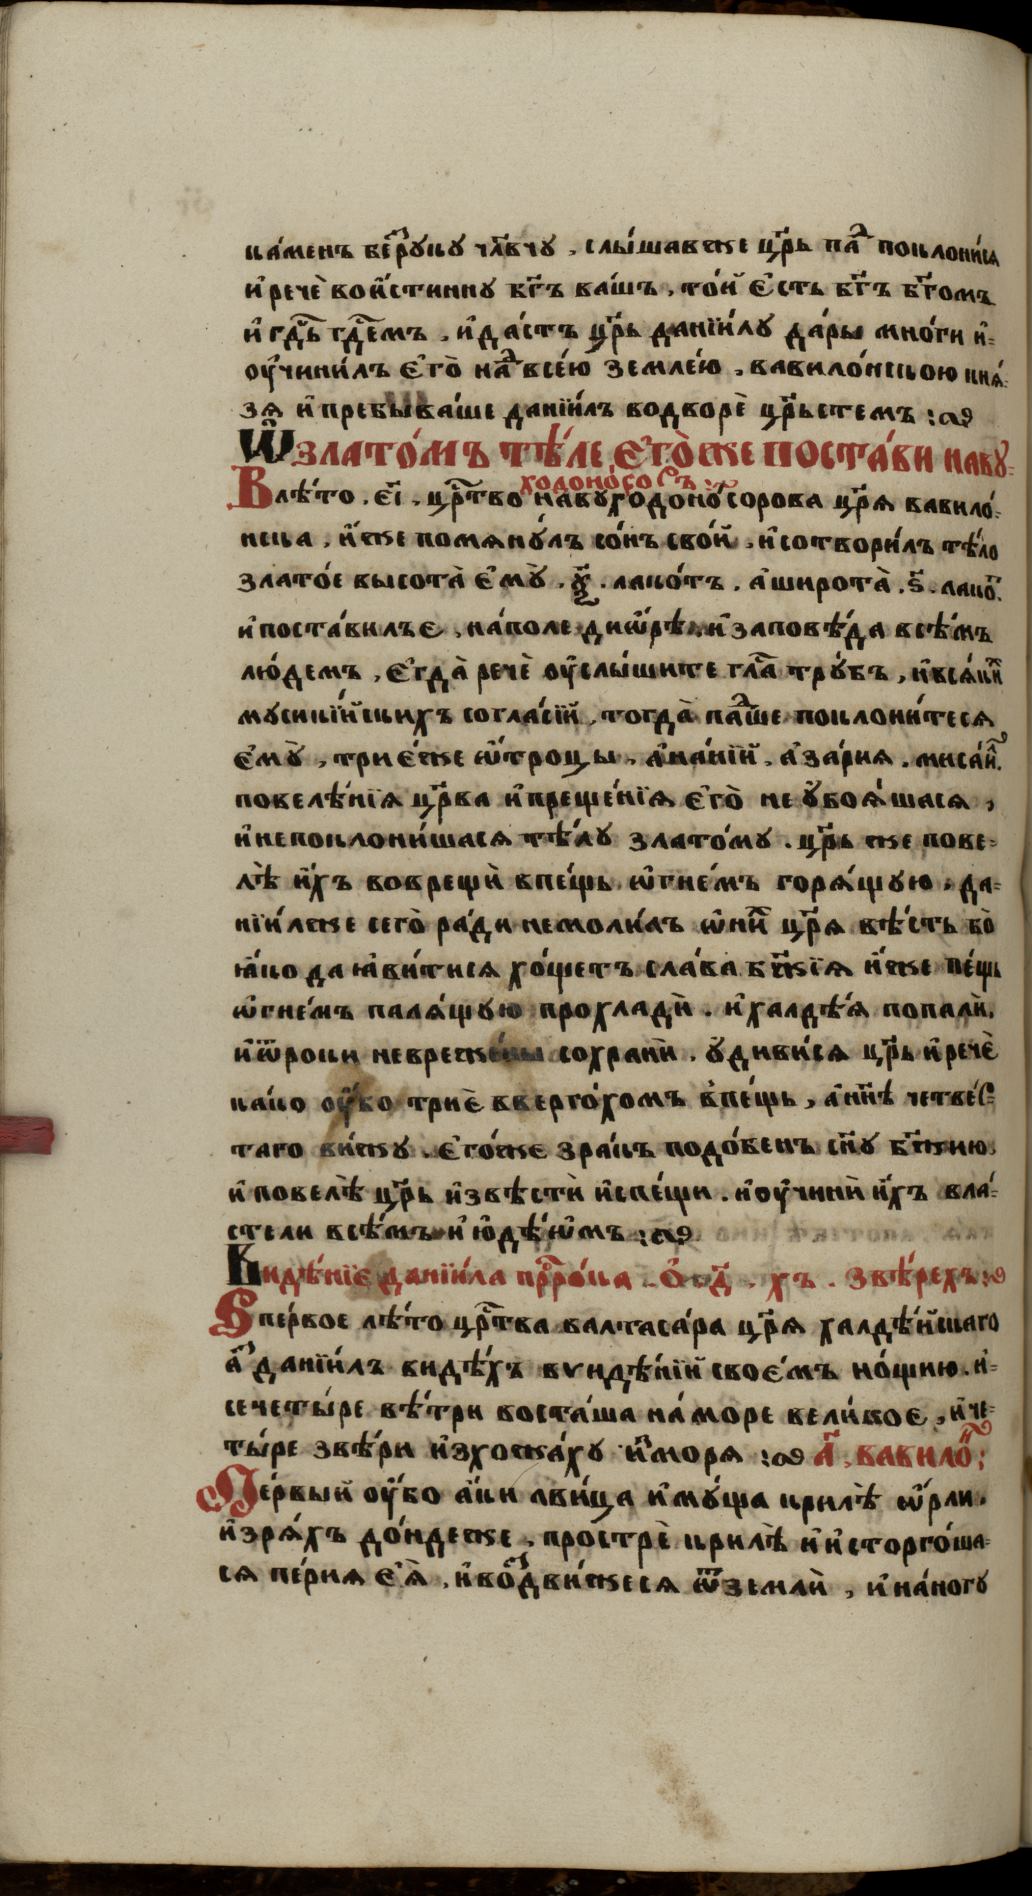 ка́менъ верꙋ́ку чл҃вчу . слы́шавже цр҃ь паⷣ поклони́ся
и҆ речѐ вои́стинну бг҃ъ ва́шъ , то́й є҆сть бг҃ъ бг҃омъ
и҆ гдⷭ҇ь гдⷭ҇емъ . и҆ да́стъ цр҃ь данїи́лу да́ры мно́ги и҆-
оу҆чини́лъ є҆го̀ наⷣ все́ю земле́ю . вавило́нскою кня́-
зя и҆ пребыва́ше данїи́лъ водворѐ цр҃ьстемъ :
Ѡ҆ злато́мъ тѣ́ле , є҆го̀же поста́ви наву-
ходоно́сосъ :
В лѣ́то . єі҃ . црⷭ҇тво навуходоно́сорова цр҃я вавило́-
нска , и҆же помянꙋ́лъ со́нъ свой . и҆ сотвори́лъ тѣ́ло
злато́е высота̀ є҆мꙋ̀ . ѯ҃ . лако́тъ . а҆ широта̀ . ѕ҃ . лакоⷮ .
и҆ поста́вилъ є . на́поле диѡ́рѣ . и҆ заповѣ́да всѣ́мъ
лю́демъ , є҆гда̀ речѐ оу҆слы́шите глаⷭ҇ трꙋ́бъ , и҆ вся́киⷯ
мусикі́йскихъ согла́сїй , тогда̀ паⷣше поклони́теся
є҆мꙋ̀ , три є҆́же ѡ҆троцы , а҆на́нїй . а҆за́рия . мисаи́л .
повелѣ́нїя цр҃ва и҆ преще́нїя є҆го̀ не ꙋ҆боя́шася ,
и҆ непоклони́шася тѣ́лу злато́му . цр҃ь же пове-
лѣ̀ и҆́хъ воврещѝ впе́щь ѡ҆гне́мъ горя́щую . да-
нїи́лже сего̀ ра́ди немоли́лъ ѡ҆ ниⷯ цр҃я вѣ́сть бо̀
ꙗ҆́ко да ꙗ҆ви́тися хо́щетъ сла́ва бж҃їя и҆́же пе́щь
ѡ҆гне́мъ паля́щую прохладѝ . и҆ халдѣ́я попалѝ ,
и҆ ѡ҆троки невреже́ны сохранѝ . ꙋ҆диви́ся цр҃ь и҆ речѐ
ка́ко оу҆́бо триѐ ввергохомъ впе́щь , а҆ нн҃ѣ четве́р-
таго ви́жу . є҆го́же зра́къ подо́бенъ сн҃у бж҃ию .
и҆ повелѣ̀ цр҃ь и҆звѣстѝ и҆спе́щи . и҆ оу҆чинѝ и҆́хъ вла́-
стели всѣ́мъ и҆ ю҆дѣ́ѡмъ :
Видѣ́нїє данїи́ла прⷪ҇ро́ка . Ѻ҆ д҃ . хъ . звѣ́рехъ :
В пе́рвое лѣ́то црⷭ҇тва валтаса́ра цр҃я халдѣ́йскаго
а҆́зъ данїи́лъ видѣ́хъ вѵидѣ́нїй своє́мъ но́щию . и҆-
се четы́ре вѣ́три воста́ша на́море вели́коє , и҆ че-
ты́ре звѣ́ри и҆зхожа́ху иⷥ моря : а҃ , вавилоⷩ :
Пе́рвый оу҆́бо а҆́ки лви́ца и҆мꙋ́ща крилѣ̀ ѡ҆рли .
и҆ зря́хъ до́ндеже , прострѐ крилѣ̀ и҆ и҆сторго́ша-
ся пе́рия є҆я̀ , и҆ воⷥдви́жеся ѿ землѝ , и҆ на́ногу